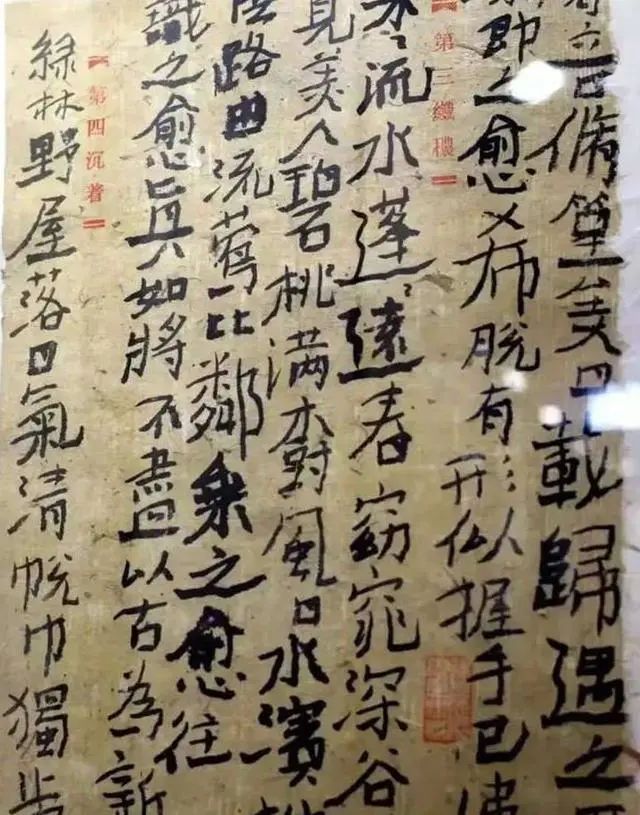 音脩篁美曰載歸遇之
即之愈希脱有形似握手已
第三纖穠
流水蓬〻遠春窈窕深谷
見美人碧桃满樹風日水濱
路曲流鶯比鄰乘之愈往
識之愈真如將不盡以古為新
第四沉著
綠林野屋落日氣清帨巾獨步